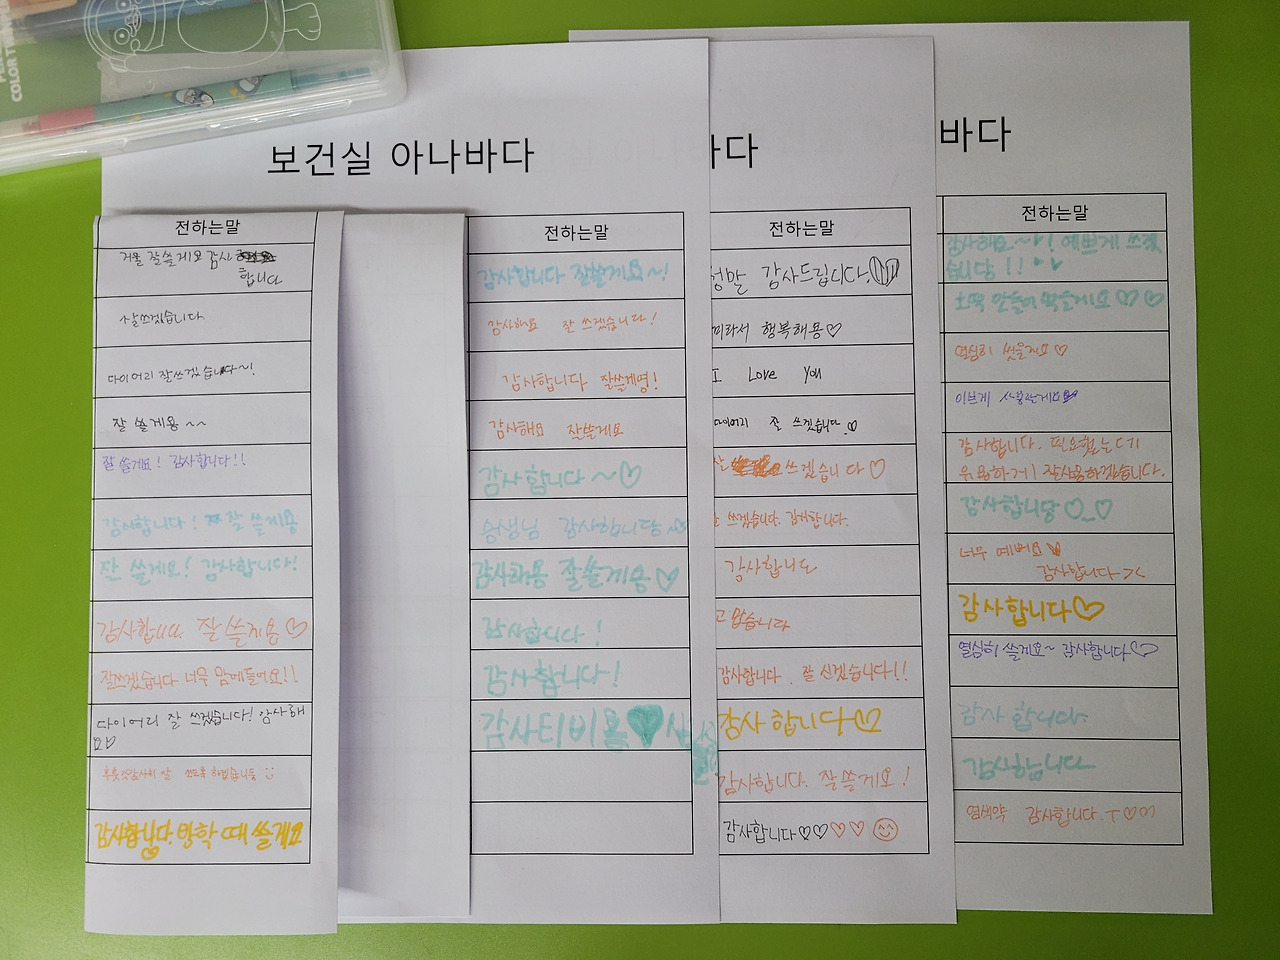 COLOR
보건실 아나바다
바다
바다
전하는말
거울 잘쓸게요 감사
합니다
잘쓰겠습니다
다이어리 잘쓰겠습니다~!
잘 쓸게용 ~~
잘 쓸게요! 감사합니다!!
감사합니다! 잘 쓸게용
잘 쓸게요! 감사합니다!
잘 쓸게용♡
잘쓰겠습니다 너무 맘에들어요!!
다이어리 잘 쓰겠습니다! 감사해
요♡
쓰도록 하겠습니다
감사합니다. 방학 때 쓸게요
전하는말
감사합니다 잘쓸게요~!
감사해요 잘 쓰겠습니다!
감사합니다 잘쓸게영!
감사해요 잘쓸게요
감사합니다 ~♡
승생님 감사합니당
감사해용 잘쓸게용♡
감사합니다!
감사합니다!
감사티비용♥
전하는말
정말 감사드립니다.
따라서 행복해용♡
I Love You
다이어리 잘 쓰겠습니다.
잘 쓰겠습니다♡
쓰겠습니다. 감사합니다.
감사합니다
고맙습니다
감사합니다. 잘 신겠습니다!!
감사합니다♡
감사합니다. 잘 쓸게요!
감사합니다♡♡♡♡
전하는말
감사해요~! 예쁘게 쓰겠
습니당!!
만들어 먹을게요♡♡
열심히 씻을게요♡
이쁘게 사용할게요
감사합니다. 필요했는데
유용하게 잘사용하겠습니다.
감사합니당♡_♡
너무 예뻐요
감사합니다><
감사합니다♡
열심히 쓸게요~ 감사합니다♡
감사합니다.
감사합니다
염색약 감사합니다.